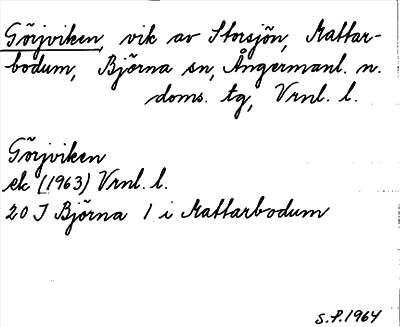 Görjviken, vik av Storsjön, Mattar-
bodum, Björna sn, Ångermanl. n.
doms. tg, Vrnl. l.
Görjviken
ek (1963) Vrnl. l.
20 I Björna 1 i Mattarbodum
S.P. 1964